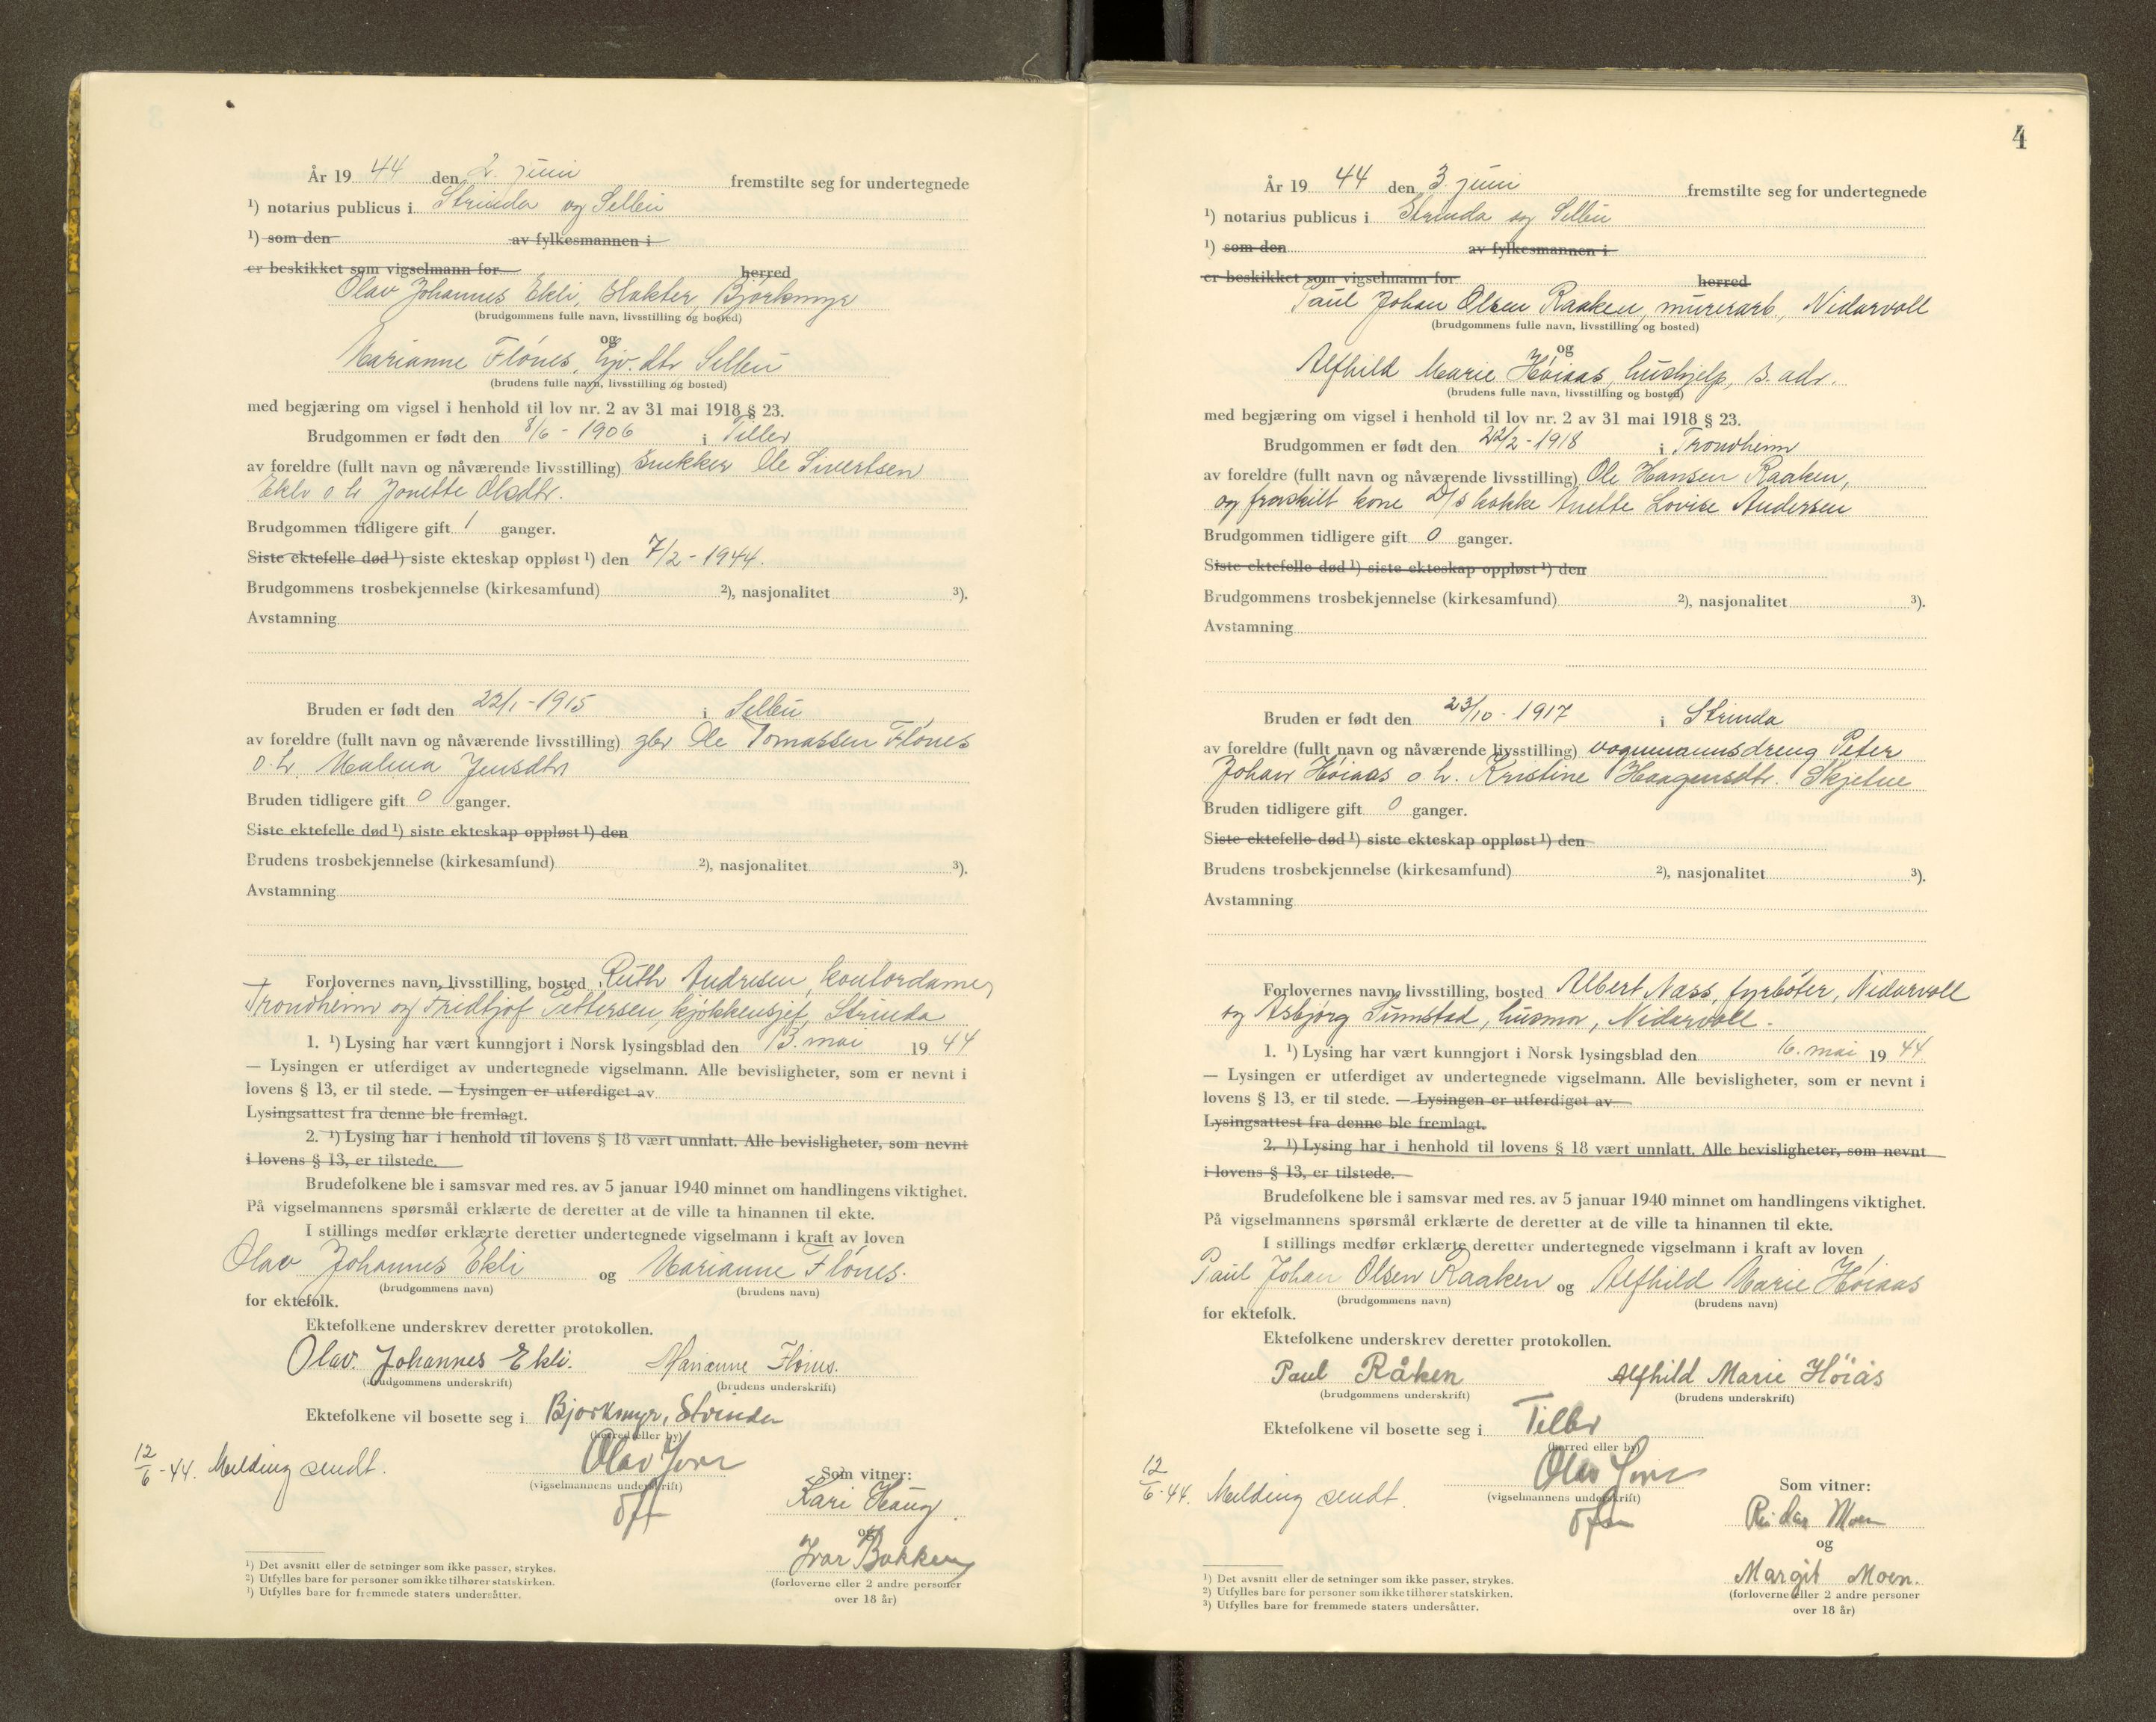 År 19 44 den 2. juni fremstilte seg for undertegnede
¹) notarius publicus i Strinda og Selbu
¹) som den av fylkesmannen i
er beskikket som vigselmann for herred
Olav Johannes Ekli, slakter, Bjørkmyr
(brudgommens fulle navn, livsstilling og bosted)
og
Marianne Flønes, hjv. dtr Selbu
(brudens fulle navn, livsstilling og bosted)
med begjæring om vigsel i henhold til lov nr. 2 av 31 mai 1918 § 23.
Brudgommen er født den 8/6 - 1906 i Tiller
av foreldre (fullt navn og nåværende livsstilling) snekker Ole Sivertsen
Ekli o. h. Jonette Olsdtr.
Brudgommen tidligere gift 1 ganger.
Siste ektefelle død ¹) siste ekteskap oppløst ¹) den 7/2 - 1944.
Brudgommens trosbekjennelse (kirkesamfund) ²), nasjonalitet ³).
Avstamning
Bruden er født den 22/1 - 1915 i Selbu
av foreldre (fullt navn og nåværende livsstilling) gbr Ole Tomassen Flønes
o. h. Malena Jensdtr
Bruden tidligere gift 0 ganger.
Siste ektefelle død ¹) siste ekteskap oppløst ¹) den
Brudens trosbekjennelse (kirkesamfund) ²), nasjonalitet ³).
Avstamning
Forlovernes navn, livsstilling, bosted Ruth Andresen, kontordame,
Trondheim og Fridtjof Pettersen, kjøkkensjef, Strinda
1. ¹) Lysing har vært kunngjort i Norsk lysingsblad den 13. mai 19 44
— Lysingen er utferdiget av undertegnede vigselmann. Alle bevisligheter, som er nevnt i
lovens § 13, er til stede. — Lysingen er utferdiget av
Lysingsattest fra denne ble fremlagt.
2. ¹) Lysing har i henhold til lovens § 18 vært unnlatt. Alle bevisligheter, som nevnt
i lovens § 13, er tilstede.
Brudefolkene ble i samsvar med res. av 5 januar 1940 minnet om handlingens viktighet.
På vigselmannens spørsmål erklærte de deretter at de ville ta hinannen til ekte.
I stillings medfør erklærte deretter undertegnede vigselmann i kraft av loven
Olav Johannes Ekli og Marianne Flønes.
(brudgommens navn) (brudens navn)
for ektefolk.
Ektefolkene underskrev deretter protokollen.
Olav Johannes Ekli. Marianne Flønes.
(brudgommens underskrift) (brudens underskrift)
Ektefolkene vil bosette seg i Bjørkmyr, Strinda
(herred eller by)
12/6 - 44. Melding sendt.
(vigselmannens underskrift)
Som vitner:
Kari Haug
og
Ivar Bakken
(forloverne eller 2 andre personer
over 18 år)
¹) Det avsnitt eller de setninger som ikke passer, strykes.
²) Utfylles bare for personer som ikke tilhører statskirken.
³) Utfylles bare for fremmede staters undersåtter.
4
År 19 44 den 3. juni fremstilte seg for undertegnede
¹) notarius publicus i Strinda og Selbu
¹) som den av fylkesmannen i
er beskikket som vigselmann for herred
Paul Johan Olsen Raaken, murerarb., Nidarvoll
(brudgommens fulle navn, livsstilling og bosted)
og
Alfhild Marie Høiaas, hushjelp, s. adr.
(brudens fulle navn, livsstilling og bosted)
med begjæring om vigsel i henhold til lov nr. 2 av 31 mai 1918 § 23.
Brudgommen er født den 22/2 - 1918 i Trondheim
av foreldre (fullt navn og nåværende livsstilling) Ole Hansen Raaken,
og fraskilt kone D/s kokke Anette Lovise Andersen
Brudgommen tidligere gift 0 ganger.
Siste ektefelle død ¹) siste ekteskap oppløst ¹) den
Brudgommens trosbekjennelse (kirkesamfund) ²), nasjonalitet ³).
Avstamning
Bruden er født den 23/10 - 1917 i Strinda
av foreldre (fullt navn og nåværende livsstilling) vognmannsdreng Peter
Johan Høiaas o. h. Kristine Haagensdtr. Skjetne
Bruden tidligere gift 0 ganger.
Siste ektefelle død ¹) siste ekteskap oppløst ¹) den
Brudens trosbekjennelse (kirkesamfund) ²), nasjonalitet ³).
Avstamning
Forlovernes navn, livsstilling, bosted Albert Næss, fyrbøter, Nidarvoll
og Asbjørg Sunnstad, husmor, Nidarvoll.
1. ¹) Lysing har vært kunngjort i Norsk lysingsblad den 16. mai 19 44
— Lysingen er utferdiget av undertegnede vigselmann. Alle bevisligheter, som er nevnt i
lovens § 13, er til stede. — Lysingen er utferdiget av
Lysingsattest fra denne ble fremlagt.
2. ¹) Lysing har i henhold til lovens § 18 vært unnlatt. Alle bevisligheter, som nevnt
i lovens § 13, er tilstede.
Brudefolkene ble i samsvar med res. av 5 januar 1940 minnet om handlingens viktighet.
På vigselmannens spørsmål erklærte de deretter at de ville ta hinannen til ekte.
I stillings medfør erklærte deretter undertegnede vigselmann i kraft av loven
Paul Johan Olsen Raaken og Alfhild Marie Høiaas
(brudgommens navn) (brudens navn)
for ektefolk.
Ektefolkene underskrev deretter protokollen.
Paul Råken Alfhild Marie Höiås
(brudgommens underskrift) (brudens underskrift)
Ektefolkene vil bosette seg i Tiller
(herred eller by)
12/6 - 44. Melding sendt.
(vigselmannens underskrift)
Som vitner:
Reidar Moen
og
Margit Moen.
(forloverne eller 2 andre personer
over 18 år)
¹) Det avsnitt eller de setninger som ikke passer, strykes.
²) Utfylles bare for personer som ikke tilhører statskirken.
³) Utfylles bare for fremmede staters undersåtter.